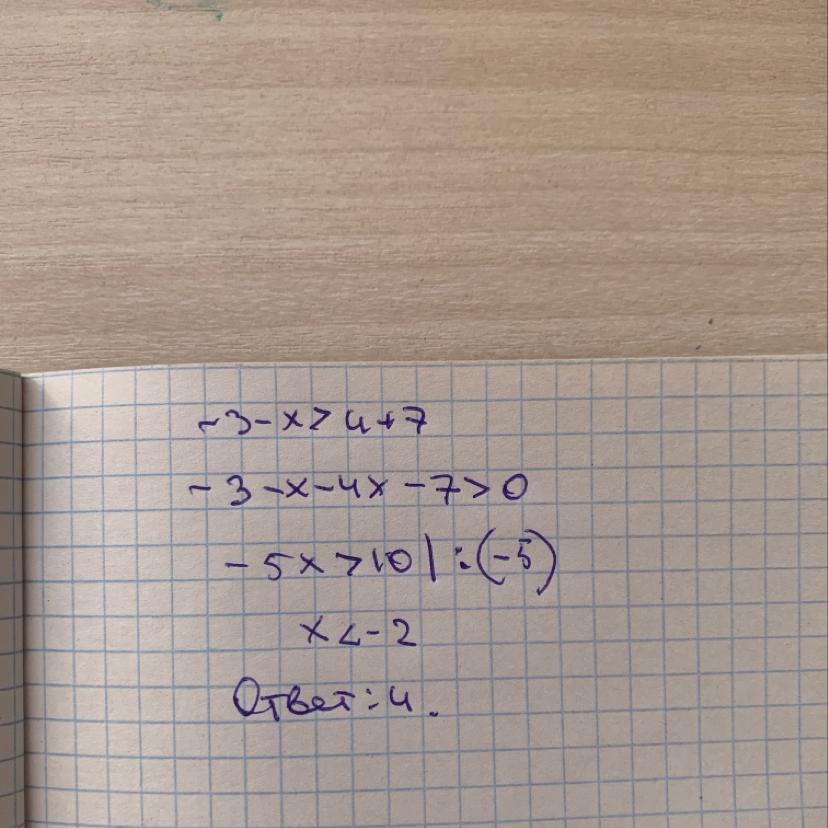 -3-x>4+7
-3-x-4x-7>0
-5x>10|:(-5)
x<-2
Ответ:4.